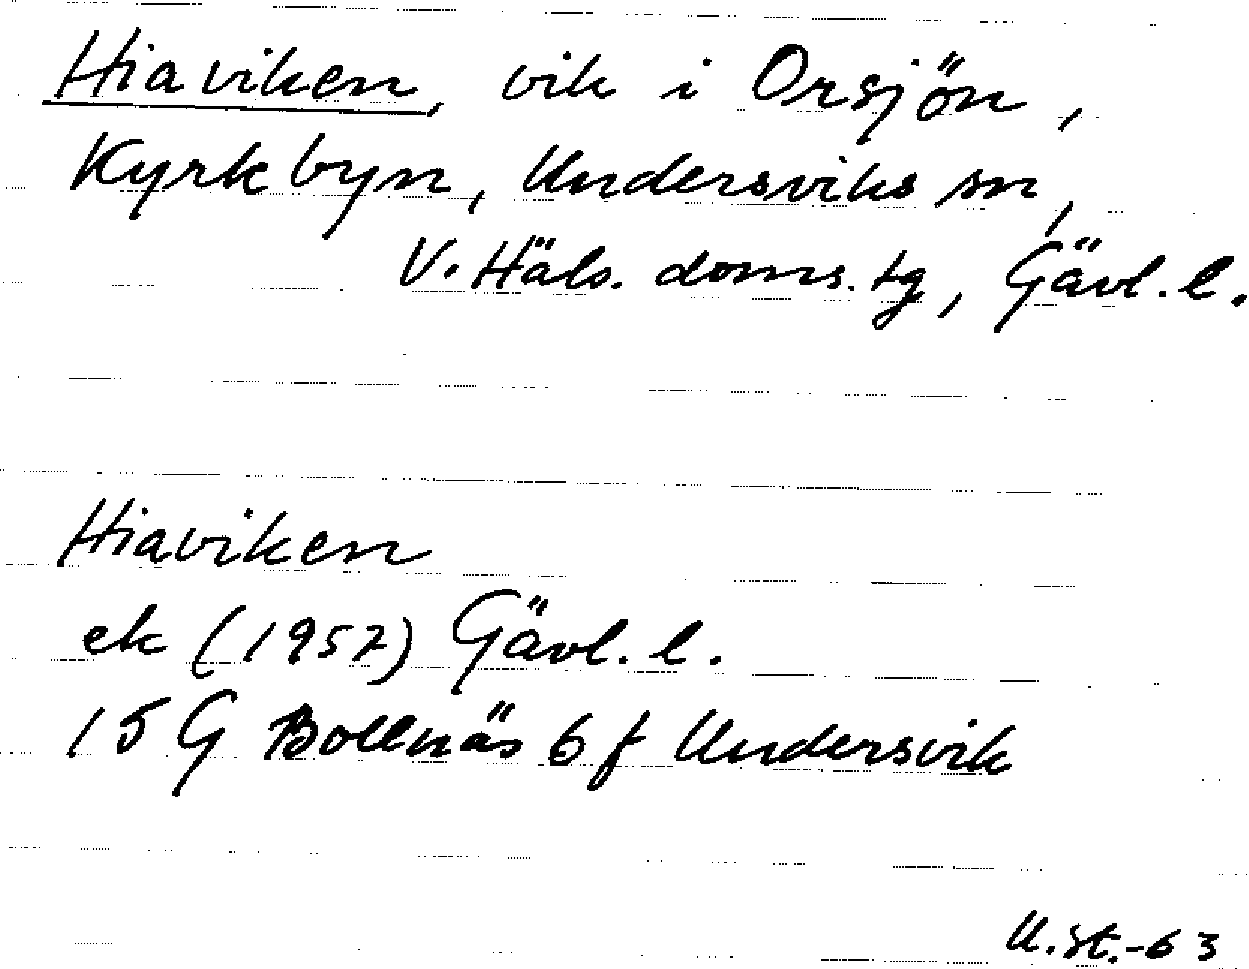 Hiaviken, vik i Orsjön,
Kyrkbyn, Undersviks sn,
V. Häls. doms. tg, Gävl. l.
Hiaviken
ek (1957) Gävl. l.
15 G Bollnäs 6 f Undersvik
U. St. -63